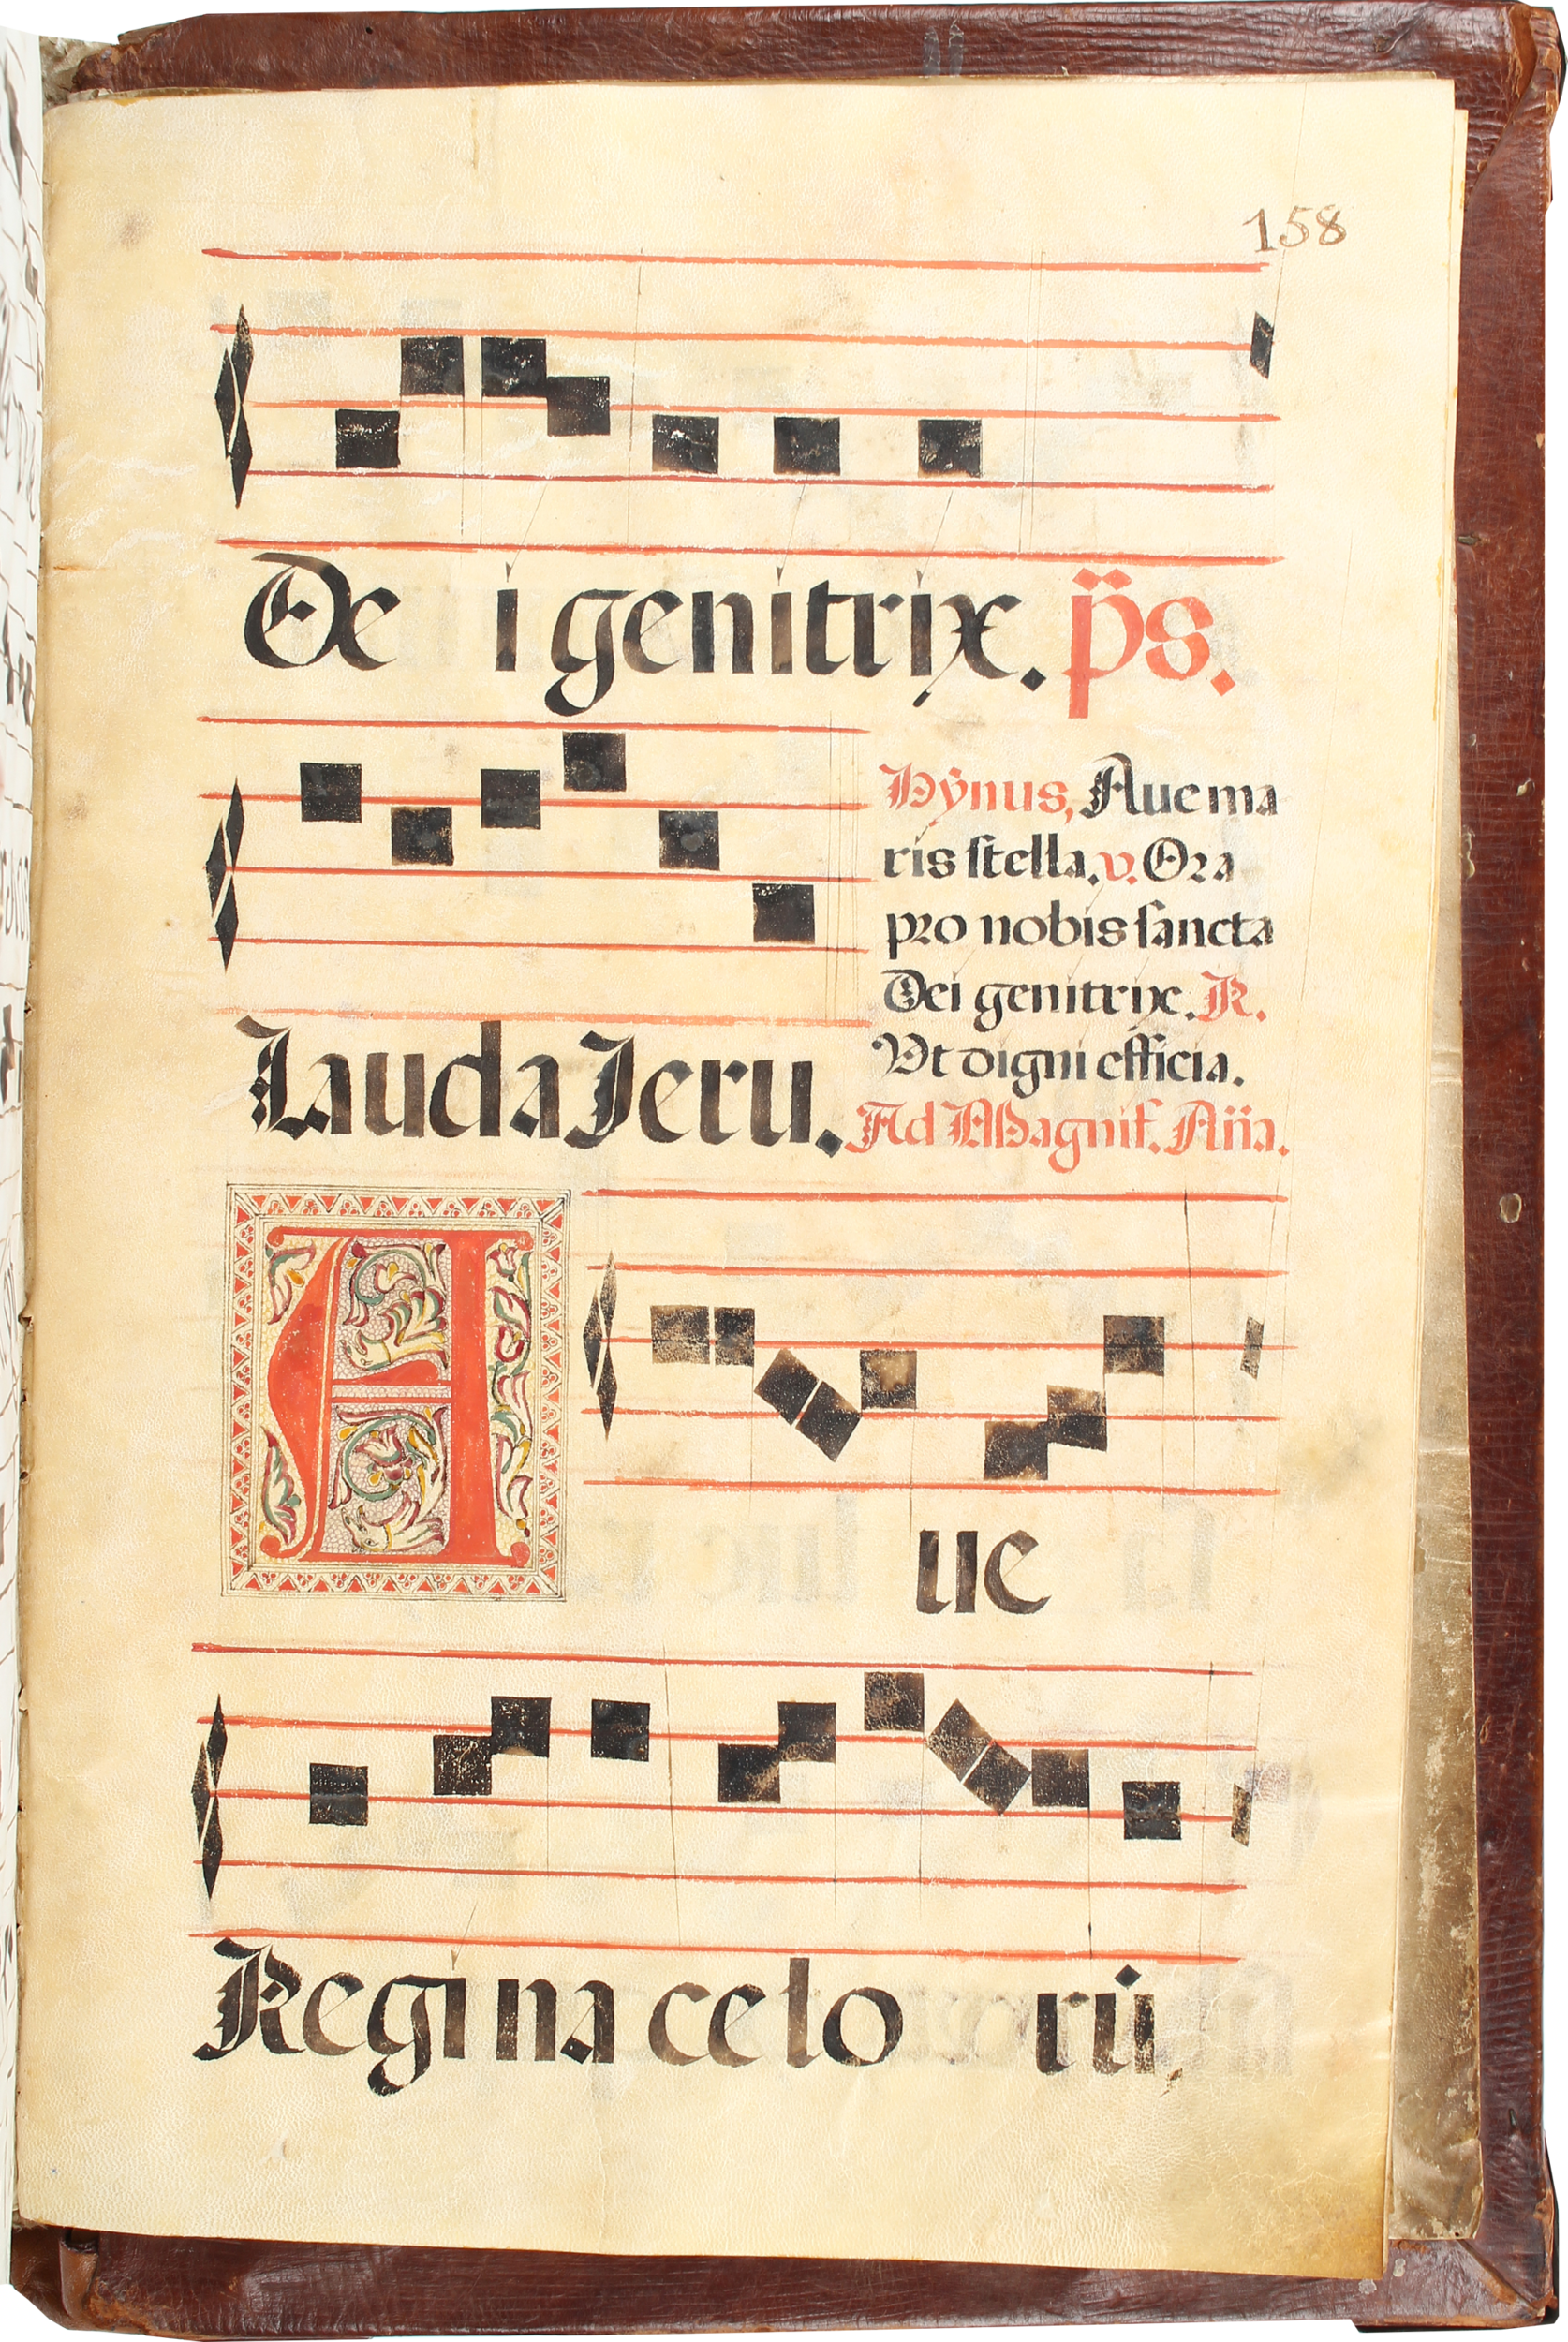 158
De i genitrix. p̈s.
Lauda Jeru.
Hÿnus, Aue ma
ris stella. v. Ora
pro nobis sancta
Dei genitrix. R.
Vt digni efficia.
Ad Magnif. Aña.
A ue
Regi na ce lo rū.